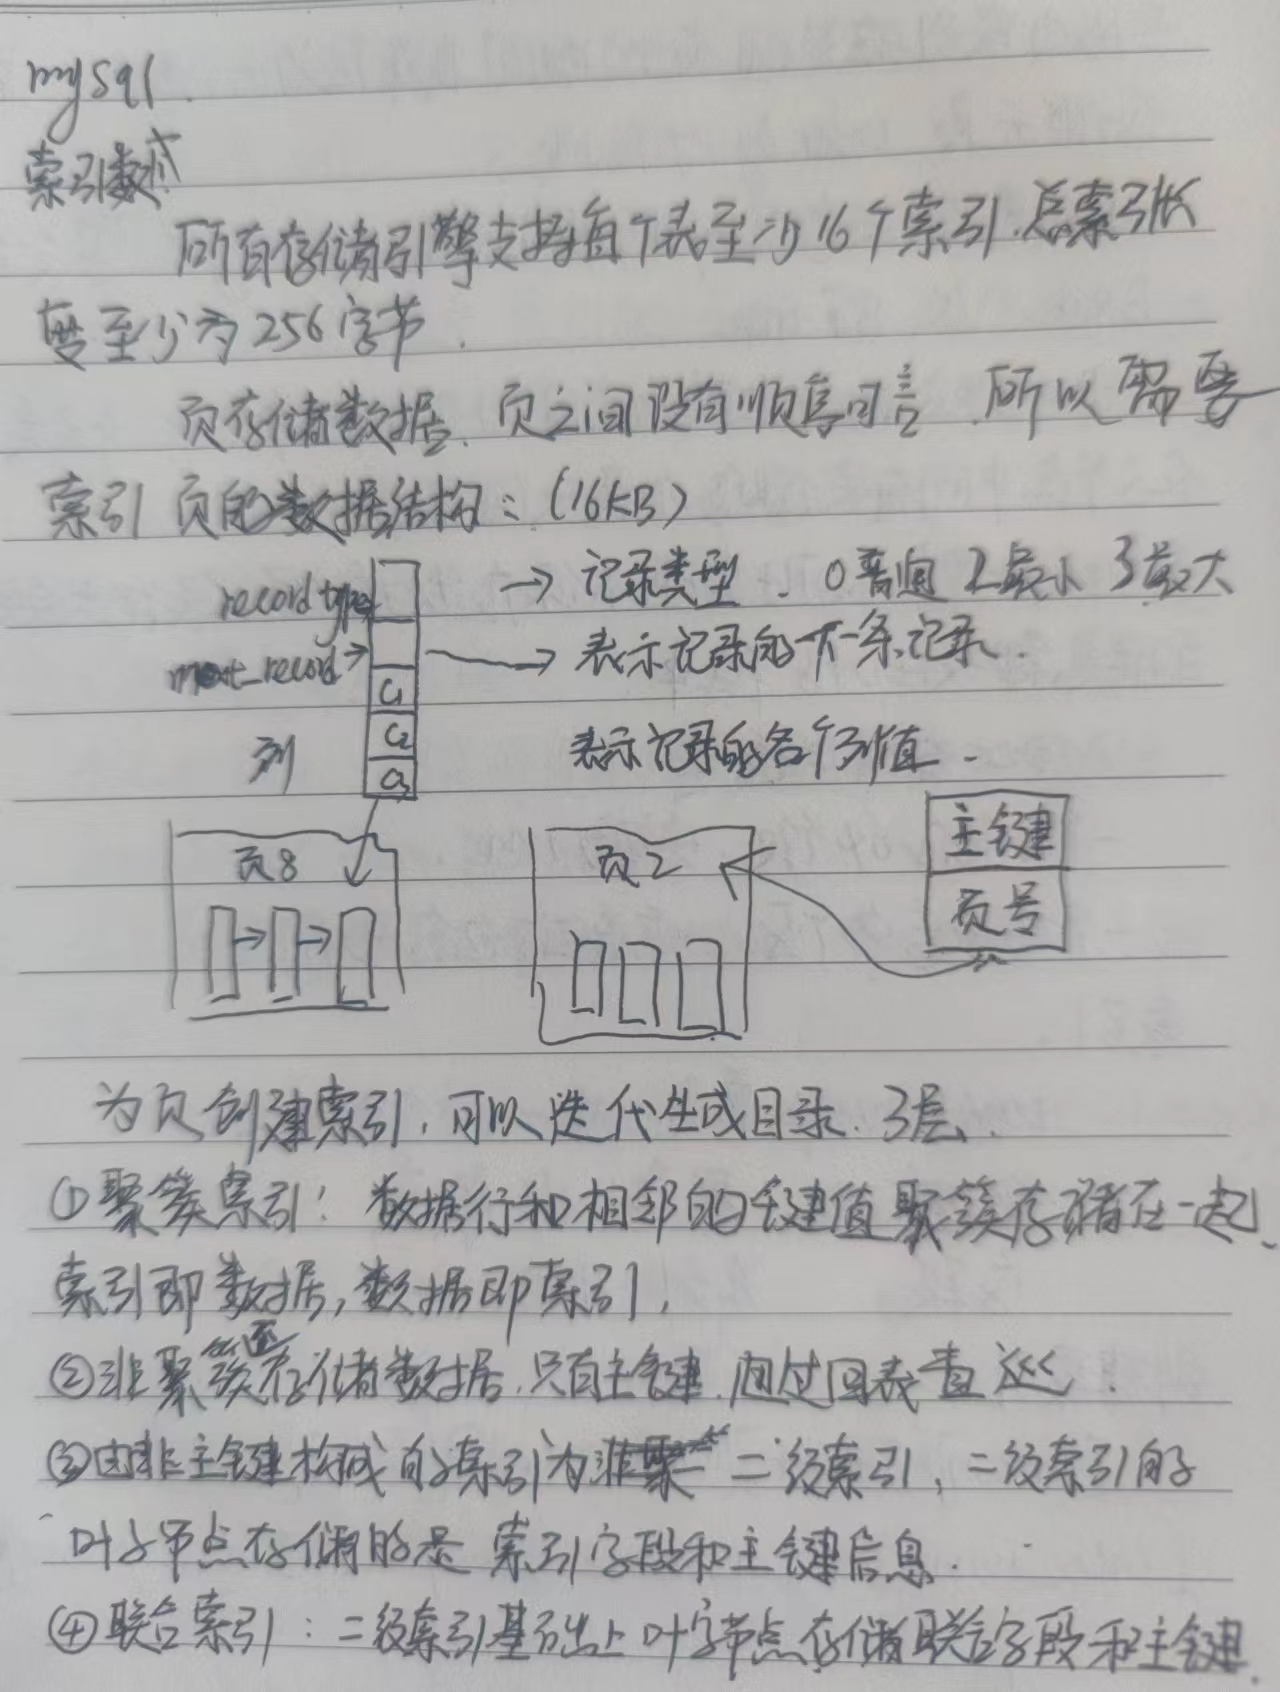 mysql.
索引数
所有存储引擎支持每个表至少16个索引.总索引长
度至少为256字节.
页存储数据.页之间没有顺序可言.所以需要
索引 页的数据结构:(16KB)
record type → 记录类型.0普通 2最小 3最大
next_record → → 表示记录的下一条记录.
C1
列 C2 表示记录的各个列值.
C3
主键
页8 页2
页号
为页创建索引,可以迭代生成目录.3层.
①聚簇索引:数据行和相邻的键值聚簇存储在一起、
索引即数据,数据即索引,
②非聚簇存储数据.只有主键.通过回表查.
③由非主键构成的索引为 二级索引,二级索引的
叶子节点存储的是 索引字段和主键信息.
④联合索引:二级索引基础上叶子节点存储联合字段和主键.